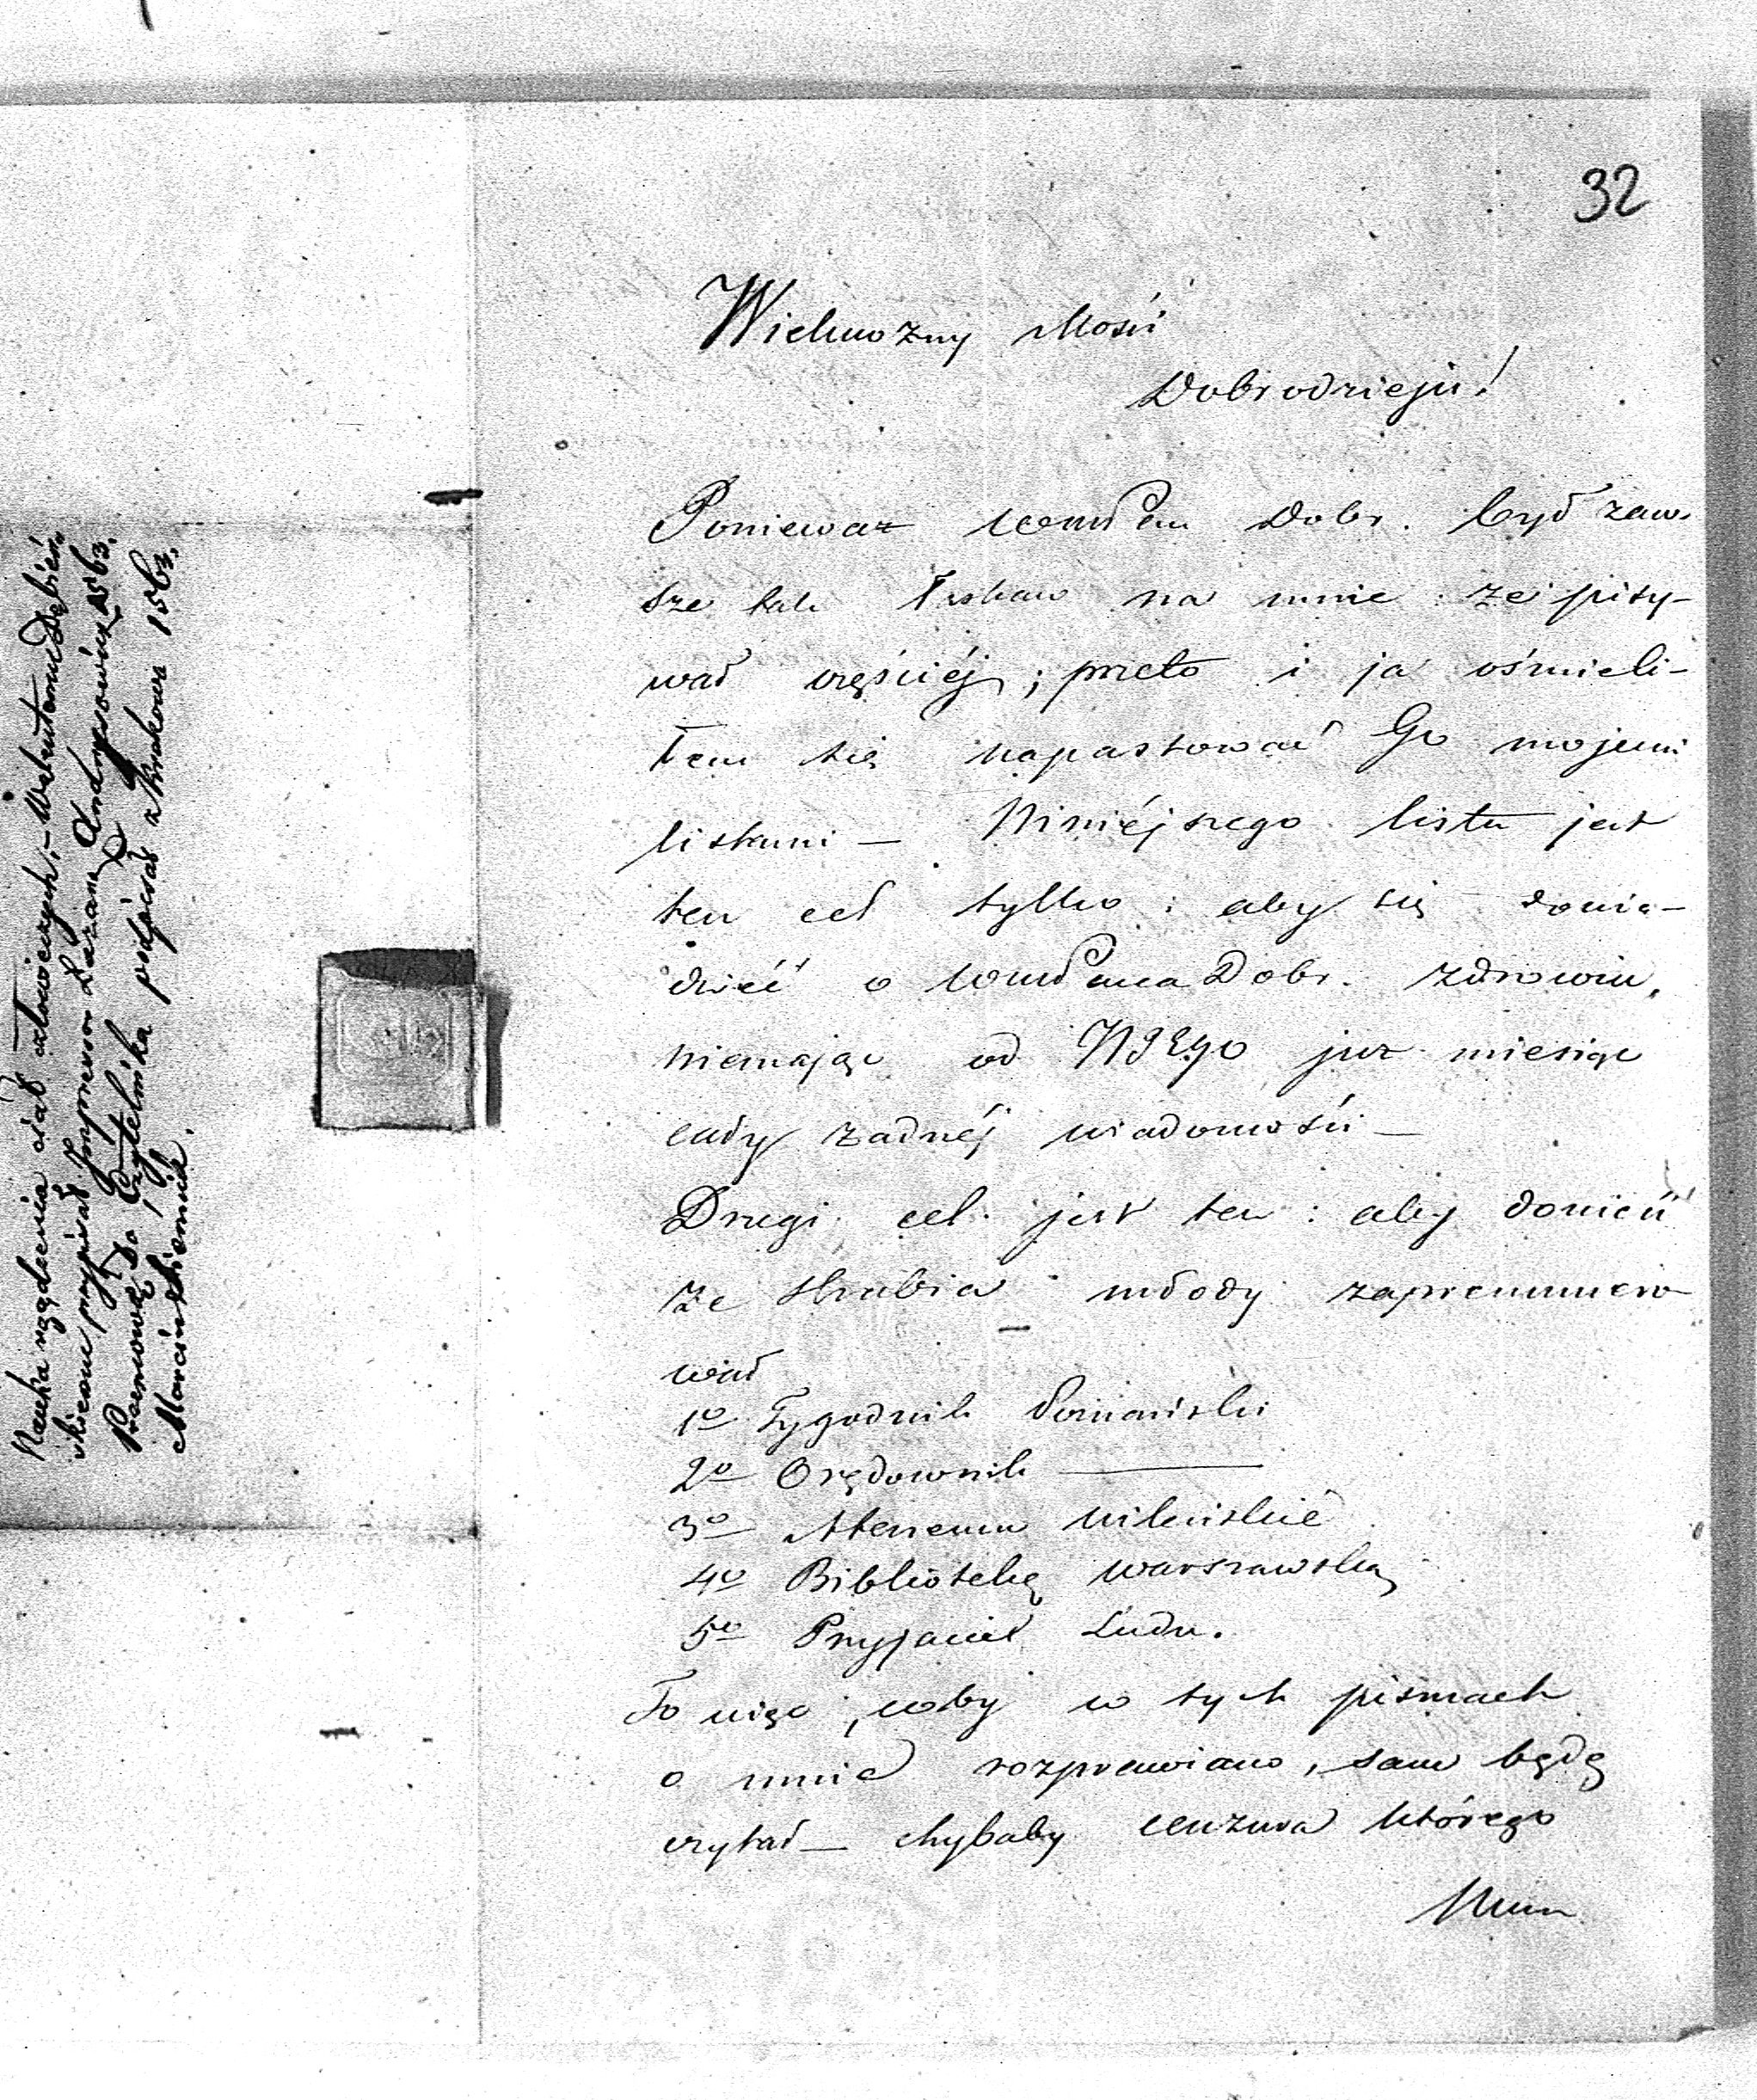 32
Wielmożny Mości
Dobrodzieju!
Ponieważ Dobr. był zaw-
sze tak łaskaw na mnie że pisy-
wał częściéj; przeto i ja ośmieli-
łem się napastować Go mojemi
listami — Niniéjszego listu jest
ten cel tylko: aby się dowie-
dzieć o Dobr. zdrowiu,
niemając od Niego już miesiąc
cały żadnéj wiadomości —
Drugi cel jest ten: aby donieść
że Hrabia młody zaprenumero-
wał
1o Tygodnik Poznański
2o Orędownik ———
3o Ateneum Wileńskie
4o Bibliotekę Warszawską
5o Przyjaciel Ludu.
To więc, coby w tych pismach
o mnie rozprawiano, sam będę
czytał — chybaby cenzura którego
Num
Nauka rządzenia ciał człowieczych. — Walentemu Dębień-
skiemu przypisał Impressor Łazarz Andrysowicz 1563.
Przemowę do Czytelnika podpisał z Krakowa 1563.
Marcin Siennik.